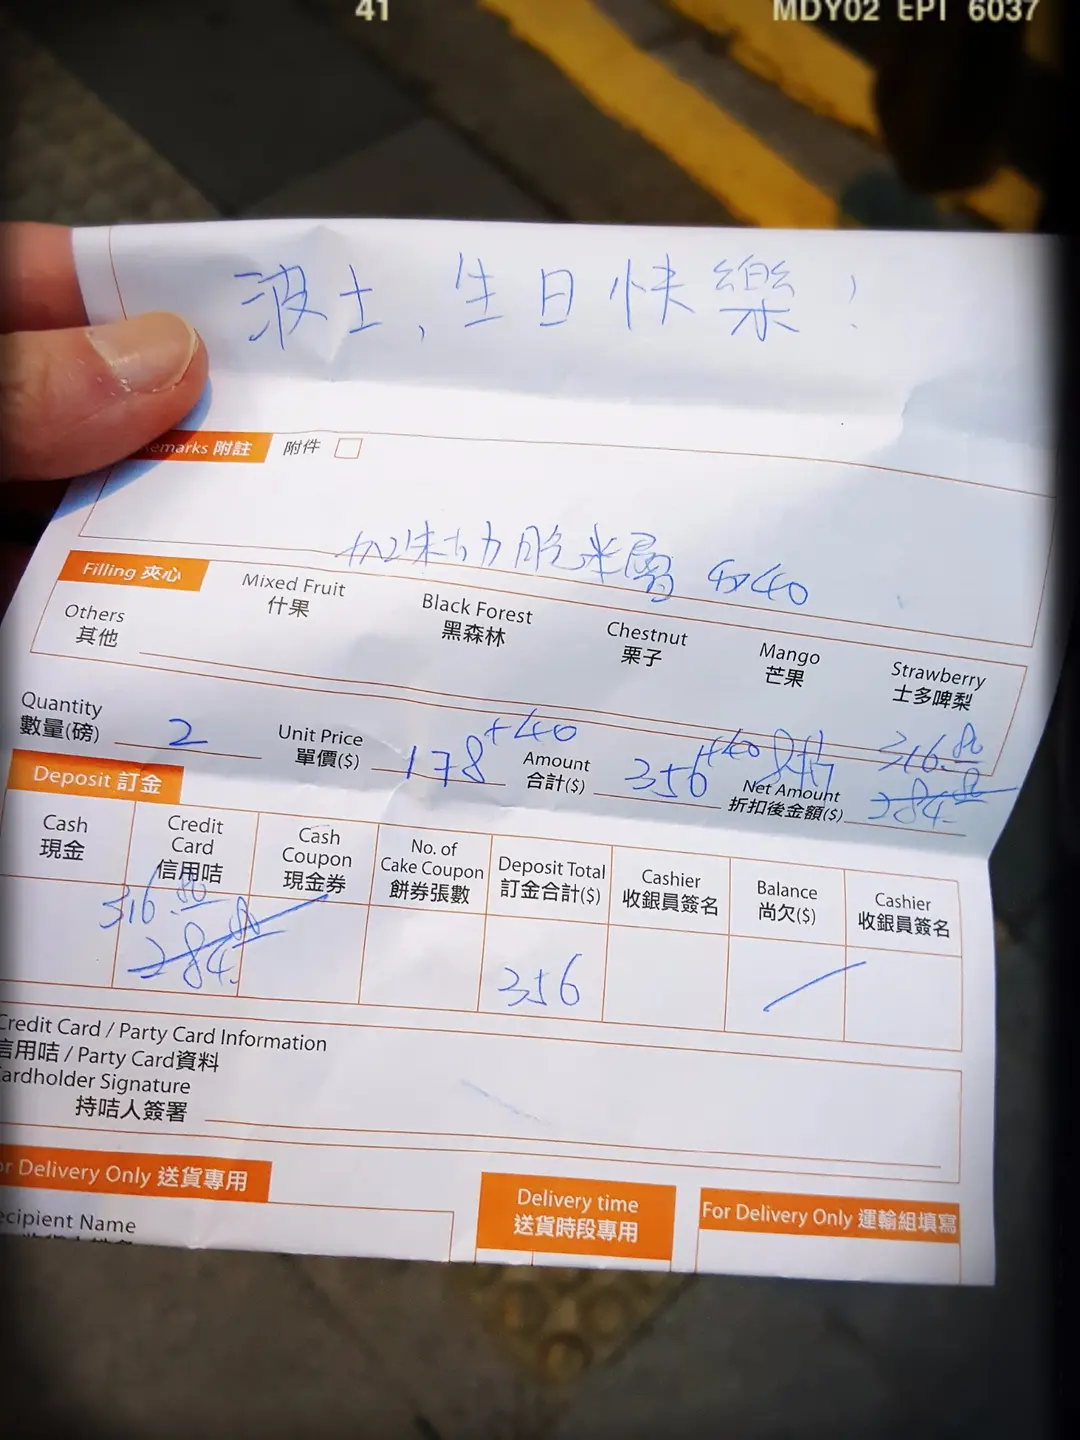 41 MDY02 EPI 6037
波士,生日快樂!
emarks 附註 附件
加朱古力脆米層 +40
Filling 夾心
Mixed Fruit
什果
Black Forest
黑森林
Chestnut
栗子
Mango
芒果
Strawberry
士多啤梨
Others
其他
Quantity
數量(磅) 2
Unit Price
單價($) 178 +40
Amount
合計($) 356 +40
Net Amount
折扣後金額($) 316.80
284.80
Deposit 訂金
Cash
現金
Credit
Card
信用咭
Cash
Coupon
現金券
No. of
Cake Coupon
餅券張數
Deposit Total
訂金合計($)
Cashier
收銀員簽名
Balance
尚欠($)
Cashier
收銀員簽名
316.80
284.80
356
Credit Card / Party Card Information
信用咭 / Party Card資料
ardholder Signature
持咭人簽署
or Delivery Only 送貨專用
Delivery time
送貨時段專用
For Delivery Only 運輸組填寫
ecipient Name